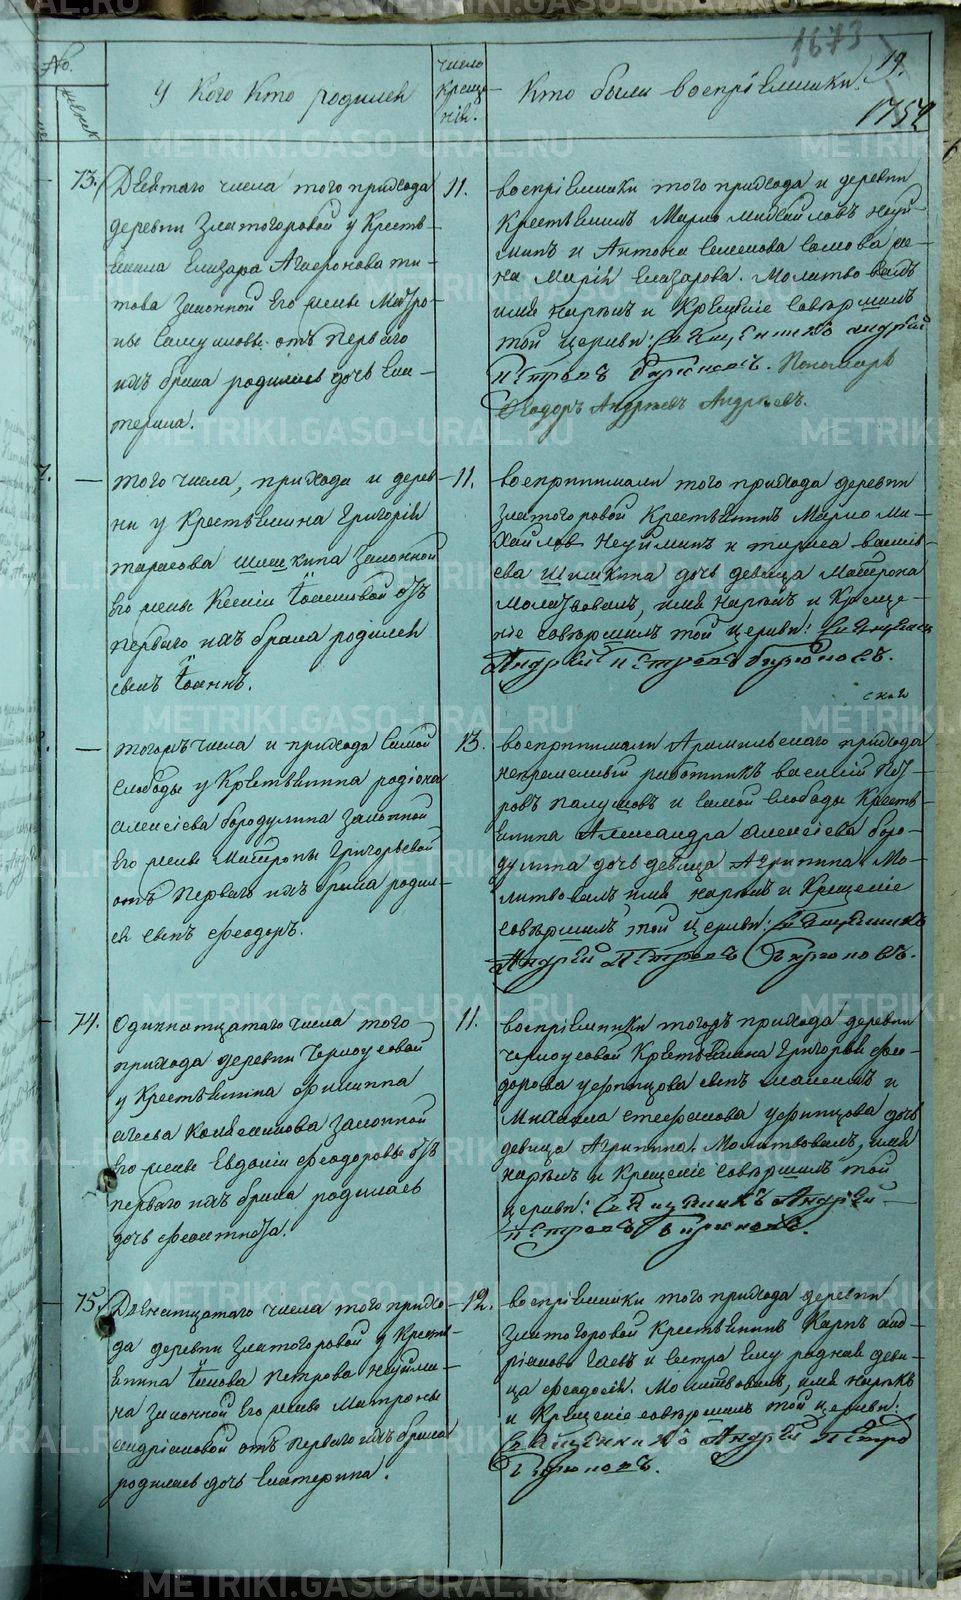 1673
19.
1752
No.
У кого кто родился
число
креще-
нiя.
Кто были воспрiемники.
73.
Девятаго числа того прихода
деревни Златогоровой у кресть-
янина Елизара Агафонова ти-
това законной его жены Матро-
ны отъ перваго
ихъ брака родилась дочь Ека-
терина.
11.
воспрiемники того прихода и деревни
крестьянинъ Марко Михайловъ Неуй-
минъ и Антона Семенова же-
на Марiя Елизарова. Молитвовалъ
имя нарекъ и крещенiе совершилъ
той церкви: Священникъ Андрей
Петровъ Бирюковъ. Пономарь
Федоръ Андреевъ Андреевъ.
того числа, прихода и дерев-
ни у крестьянина Григорiя
тарасова Шишкина законной
его жены Ксенiи Iоанновой отъ
перваго ихъ брака родился
сынъ Iоаннъ.
11.
воспринимали того прихода деревни
златогоровой крестьянинъ Марко Ми-
хайловъ Неуйминъ и тараса василь-
ева Шишкина дочь девица Матрона
Молитвовалъ, имя нарекъ и Креще-
нiе совершилъ той церкви: Священникъ
Андрей Петровъ Бирюковъ.
тогожъ числа и прихода самой
слободы у Крестьянина родiона
алексiева бородулина законной
его жены Матроны Григорьевой
отъ перваго ихъ брака родил-
ся сынъ феодоръ.
13.
скаго
воспринимали Арамильскаго прихода
непременный работникъ василiй Пет-
ровъ и самой слободы Кресть-
янина Александра алексiева боро-
дулина дочь девица Агрипина. Мо-
литвовалъ имя нарекъ и Крещенiе
совершилъ той церкви: Священникъ
Андрей Петровъ Бирюковъ.
74.
Одиннатцатаго числа того
прихода деревни Черноусовой
у Крестьянина филиппа
законной
его жены Евдокiи феодоровы отъ
перваго ихъ брака родилась
дочь феоктиста.
11.
воспрiемники тогожъ прихода деревни
черноусовой Крестьянина Григорья фео-
дорова уфинцова сынъ и
Михаила стефанова уфинцова дочь
девица Агрипина. Молитвовалъ, имя
нарекъ и Крещенiе совершилъ той
церкви: Священникъ Андрей
Петровъ Бирюковъ.
75.
Двенатцатаго числа того прихо-
да деревни Златогоровой у Кресть-
янина Iякова Петрова Неуйми-
на законной его жены Матроны
андрiановой отъ перваго ихъ брака
родилась дочь Екатерина.
12.
воспрiемники того прихода деревни
златогоровой Крестьянинъ Карпъ анд-
рiановъ Гаевъ и сестра ему родная деви-
ца феодосiя. Молитвовалъ, имя нарекъ
и Крещенiе совершилъ той церкви:
Священникъ Андрей Петровъ
Бирюковъ.
METRIKI.GASO-URAL.RU